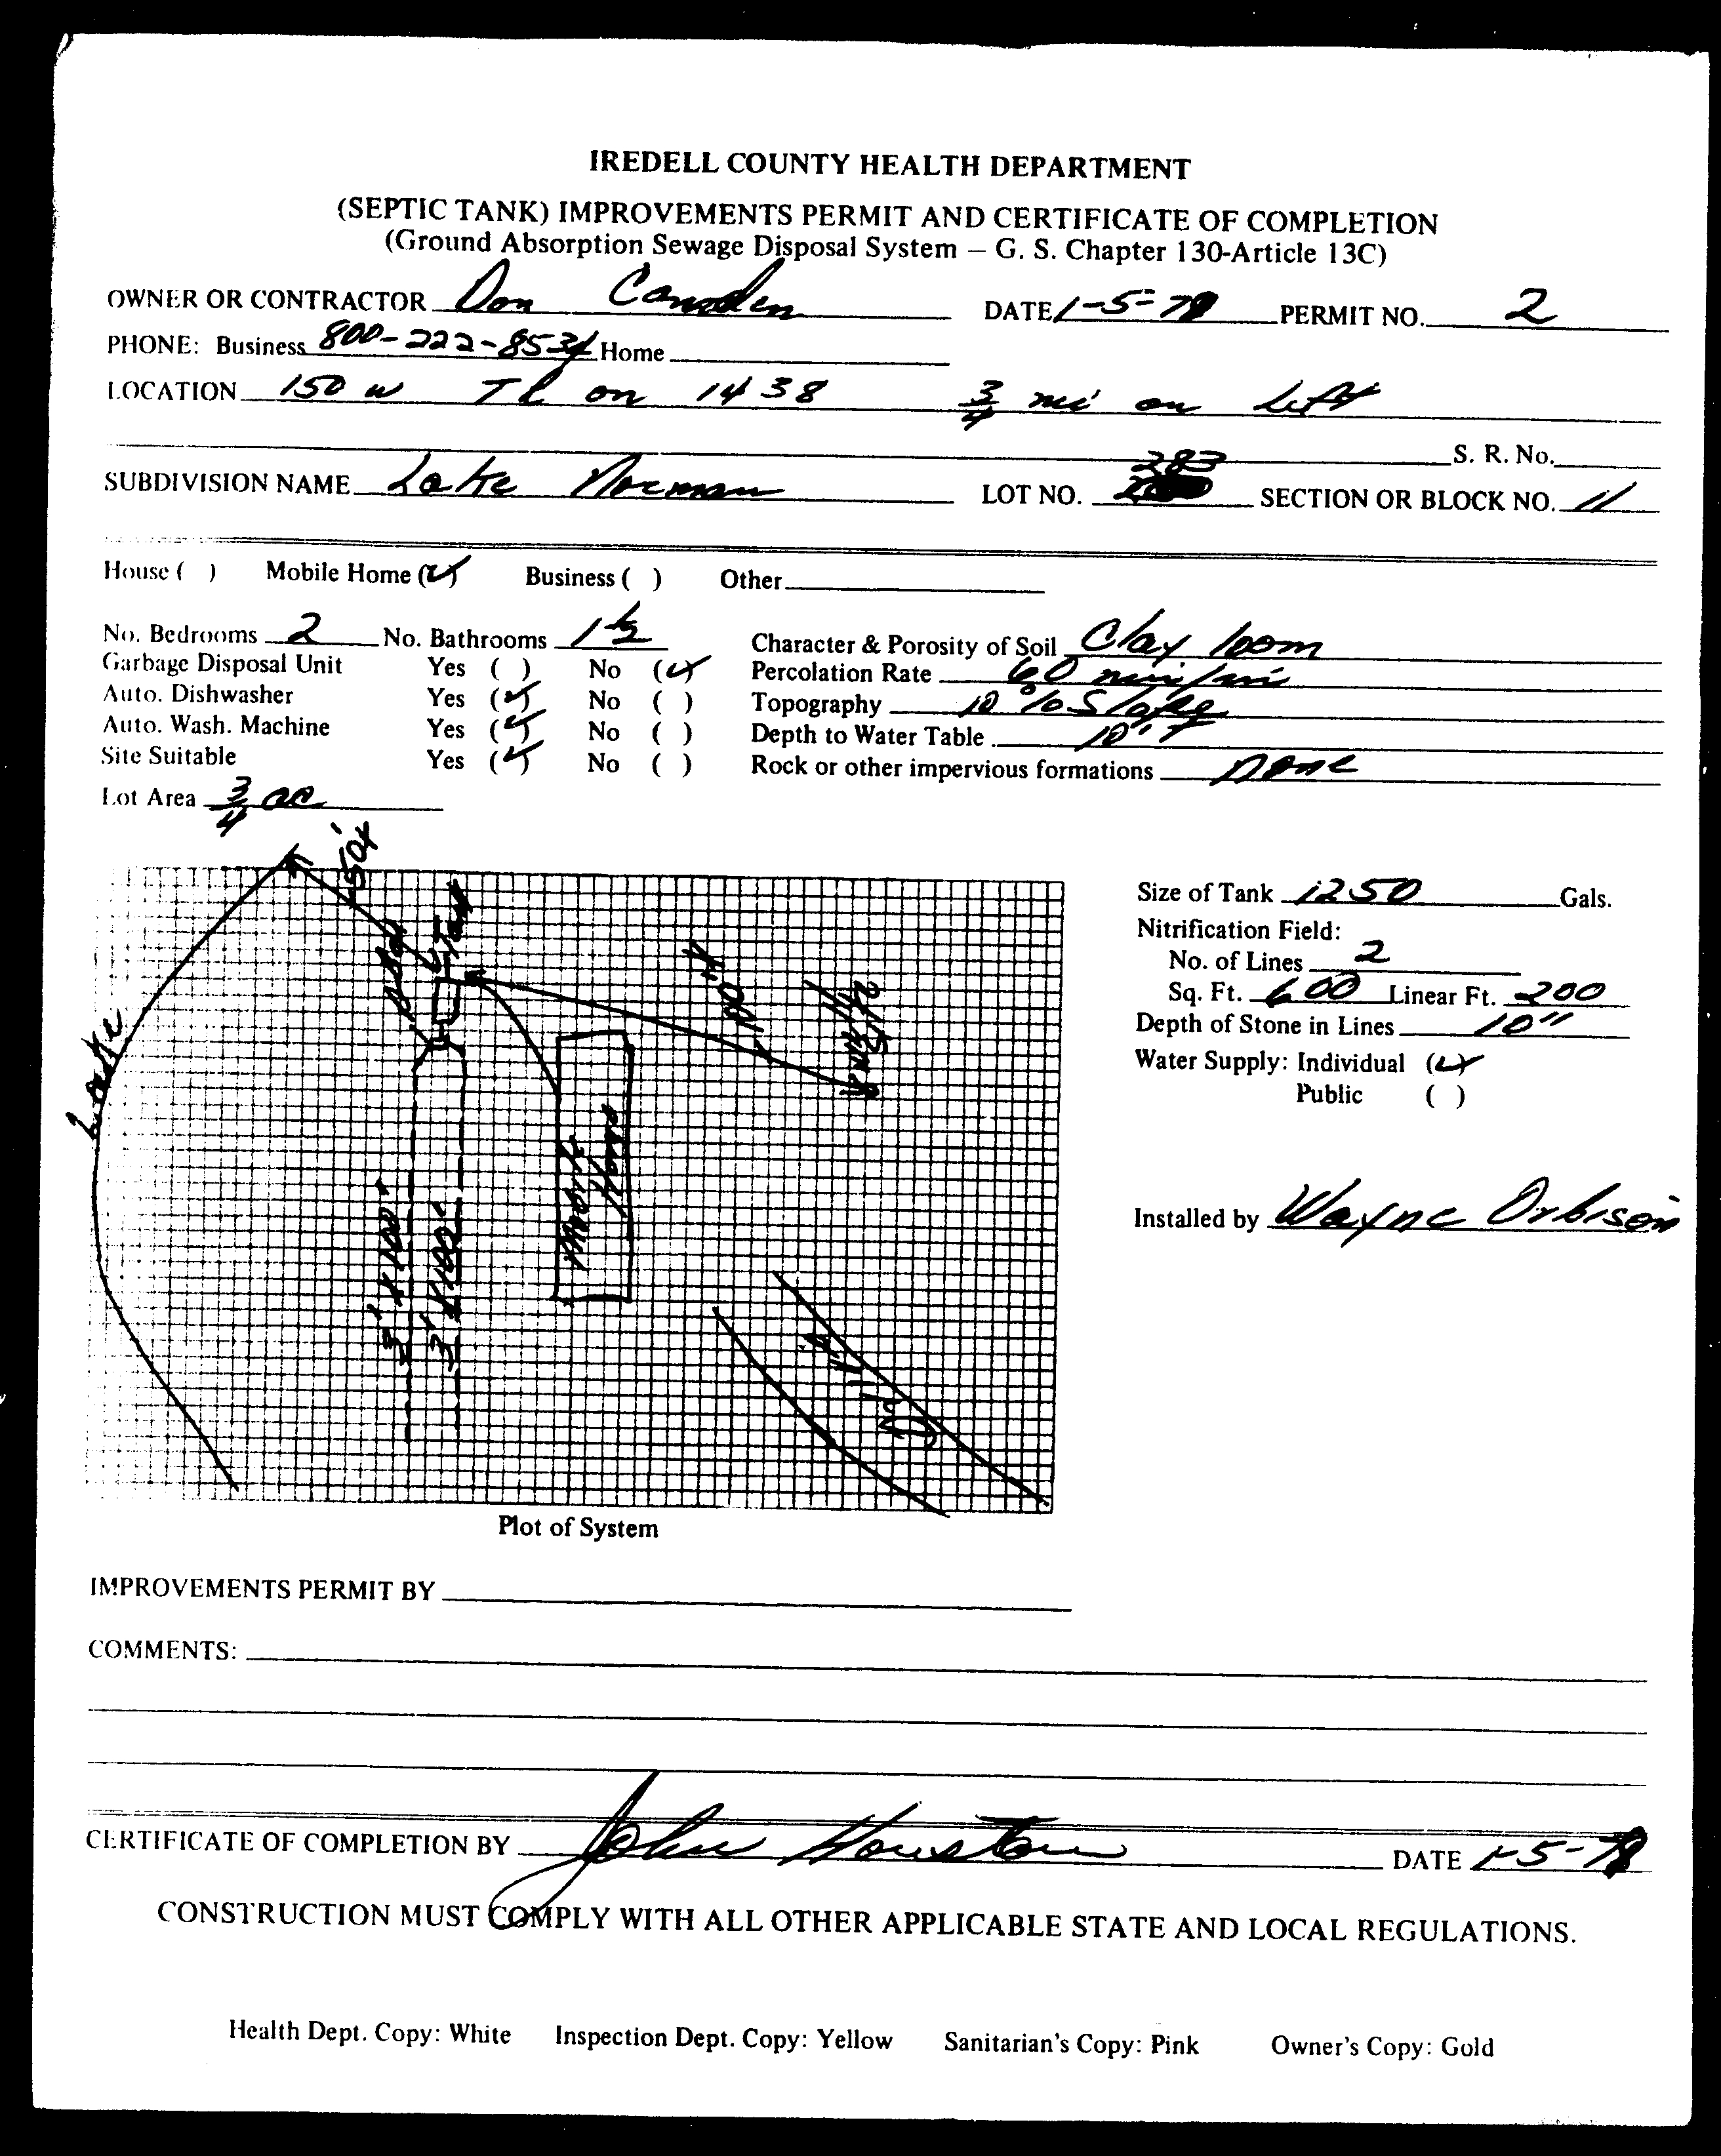 IREDELL COUNTY HEALTH DEPARTMENT
(SEPTIC TANK) IMPROVEMENTS PERMIT AND CERTIFICATE OF COMPLETION
(Ground Absorption Sewage Disposal System — G. S. Chapter 130-Article 13C)
OWNER OR CONTRACTOR Don Camden DATE 1-5-78 PERMIT NO. 2
PHONE: Business 800-222-8534 Home
LOCATION 150 W TL on 1438 3/4 mi on Left
S. R. No.
SUBDIVISION NAME Lake Norman LOT NO. 283 SECTION OR BLOCK NO. 11
House ( ) Mobile Home (✓) Business ( ) Other
No. Bedrooms 2 No. Bathrooms 1 1/2 Character & Porosity of Soil Clay loom
Garbage Disposal Unit Yes ( ) No (✓) Percolation Rate 60 min/in
Auto. Dishwasher Yes (✓) No ( ) Topography 10 % Slope
Auto. Wash. Machine Yes (✓) No ( ) Depth to Water Table 10'+
Site Suitable Yes (✓) No ( ) Rock or other impervious formations none
Lot Area 3/4 ac
50+
Tank
Lake
3' x 100'
3' x 100'
Mobile Home
Drive
Size of Tank 1250 Gals.
Nitrification Field:
No. of Lines 2
Sq. Ft. 600 Linear Ft. 200
Depth of Stone in Lines 10"
Water Supply: Individual (✓)
Public ( )
Installed by Wayne Orbison
Plot of System
IMPROVEMENTS PERMIT BY
COMMENTS:
CERTIFICATE OF COMPLETION BY John Houston DATE 1-5-78
CONSTRUCTION MUST COMPLY WITH ALL OTHER APPLICABLE STATE AND LOCAL REGULATIONS.
Health Dept. Copy: White Inspection Dept. Copy: Yellow Sanitarian's Copy: Pink Owner's Copy: Gold